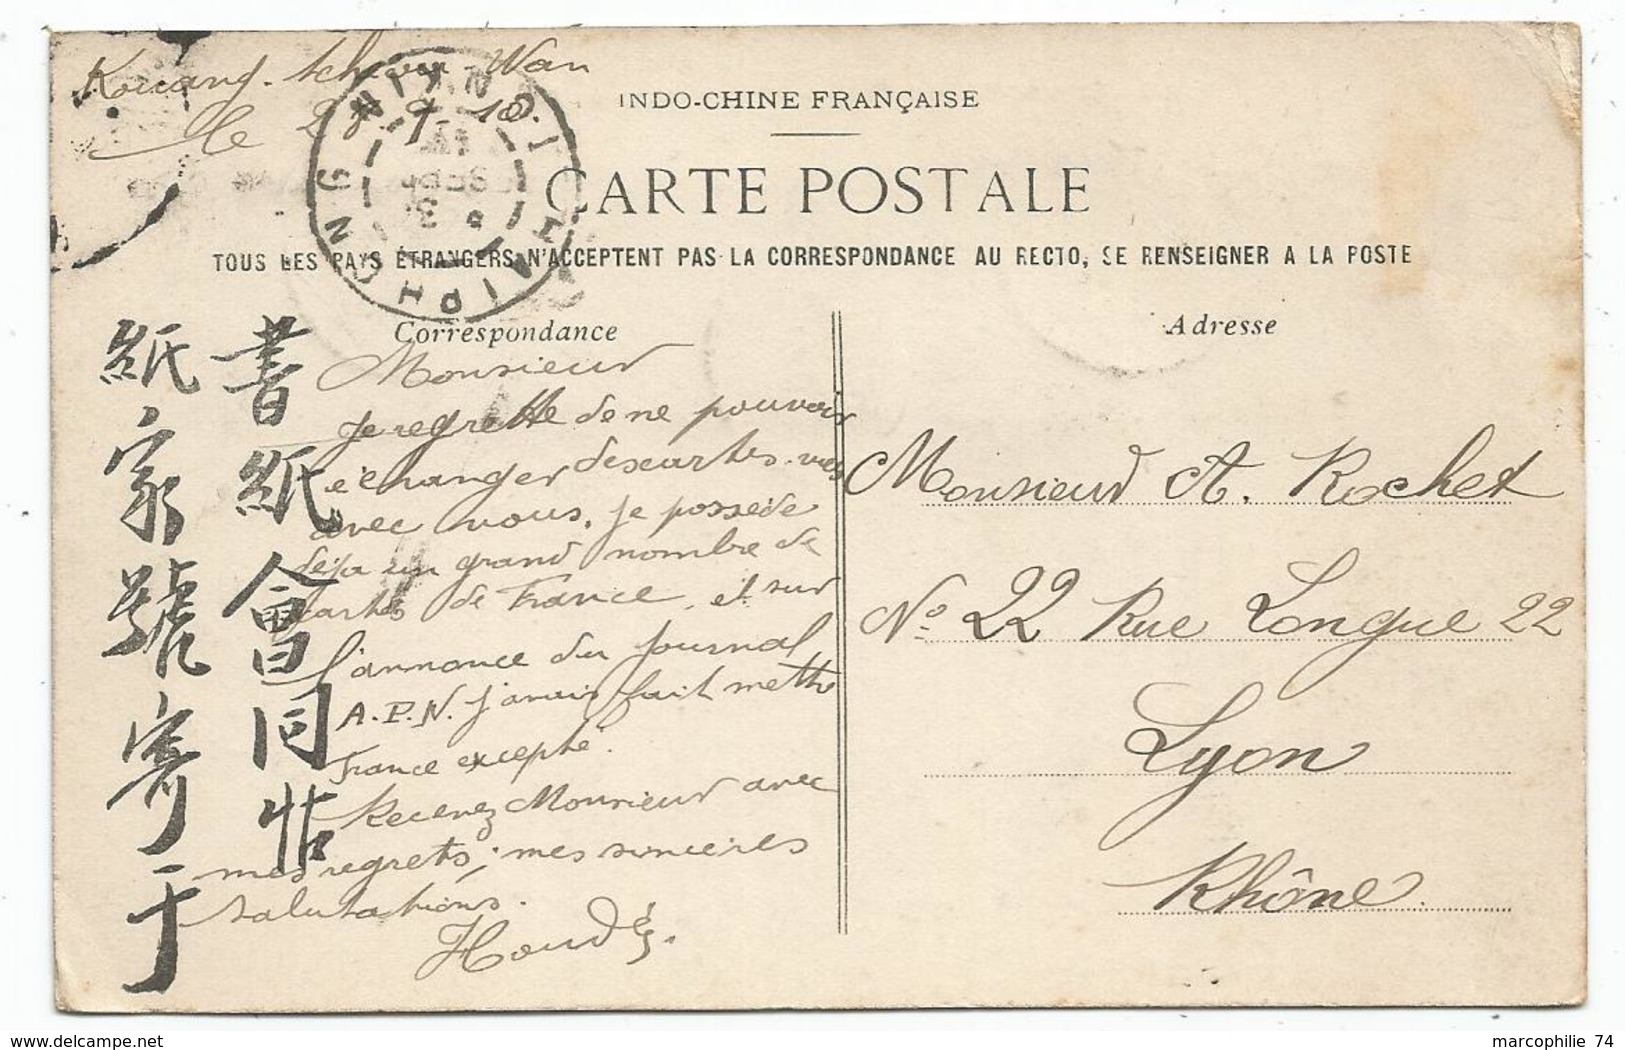 Kouang-tchéou-Wan
le 28.9.10.
INDO-CHINE FRANÇAISE
CARTE POSTALE
TOUS LES PAYS ÉTRANGERS N'ACCEPTENT PAS LA CORRESPONDANCE AU RECTO, SE RENSEIGNER A LA POSTE
HAIPHONG
Correspondance
Monsieur
Je regrette de ne pouvoir
échanger des cartes vues
avec vous, je possède
déja un grand nombre de
cartes de France, et sur
l'annonce du journal
A.P.N. j'avais fait mettre
France excepté.
Recevez Monsieur avec
mes regrets, mes sincères
salutations.
書紙會同帖
紙家號寄于
Adresse
Monsieur A. Rochet
No 22 Rue Longue 22
Lyon
Rhône.
marcophilie 74